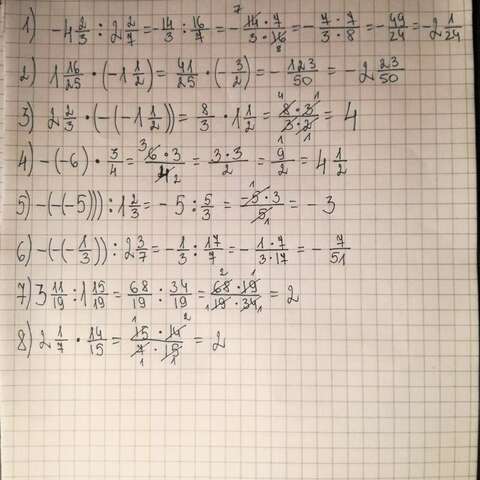 1) -4 2/3 : 2 2/7 = -14/3 : 16/7 = - (14 · 7)/(3 · 16) = - (7 · 7)/(3 · 8) = -49/24 = -2 1/24
2) 1 16/25 · (-1 1/2) = 41/25 · (-3/2) = - 123/50 = -2 23/50
3) 2 2/3 · (-(-1 1/2)) = 8/3 · 1 1/2 = (8 · 3)/(3 · 2) = 4
4) -(-6) · 3/4 = (6 · 3)/4 = (3 · 3)/2 = 9/2 = 4 1/2
5) -(-(-5))) : 1 2/3 = -5 : 5/3 = (-5 · 3)/5 = -3
6) -(-(-1/3)) : 2 3/7 = -1/3 : 17/7 = - (1 · 7)/(3 · 17) = - 7/51
7) 3 11/19 : 1 15/19 = 68/19 : 34/19 = (68 · 19)/(19 · 34) = 2
8) 2 1/7 · 14/15 = (15 · 14)/(7 · 15) = 2